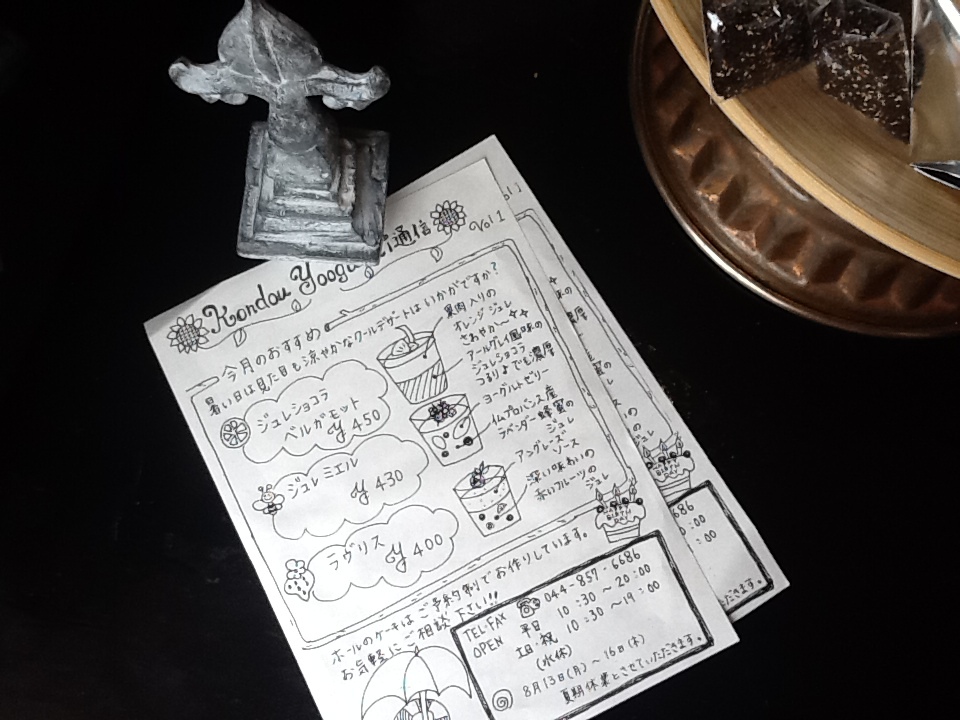 Kondou Yoog
通信
Vol 1
今月のおすすめ
暑い日は見た目も涼やかなクールデザートはいかがですか?
ジュレショコラ
ベルガモット
¥450
果肉入りの
オレンジジュレ
さわやか〜
アールグレイ風味の
ジュレショコラ
つるりよでも濃厚
ジュレミエル
¥430
ヨーグルトゼリー
仏プロバンス産
ラベンダー蜂蜜の
ジュレ
ラヴリス
¥400
アングレーズ
ソース
深い味わいの
赤いフルーツの
ジュレ
ホールのケーキはご予約制でお作りしています。
お気軽にご相談下さい!!!
TEL・FAX 044-857-6686
OPEN 平日 10:30〜20:00
土日・祝 10:30〜19:00
(水休)
8月13日(月)〜16日(木)
夏期休業とさせていただきます。